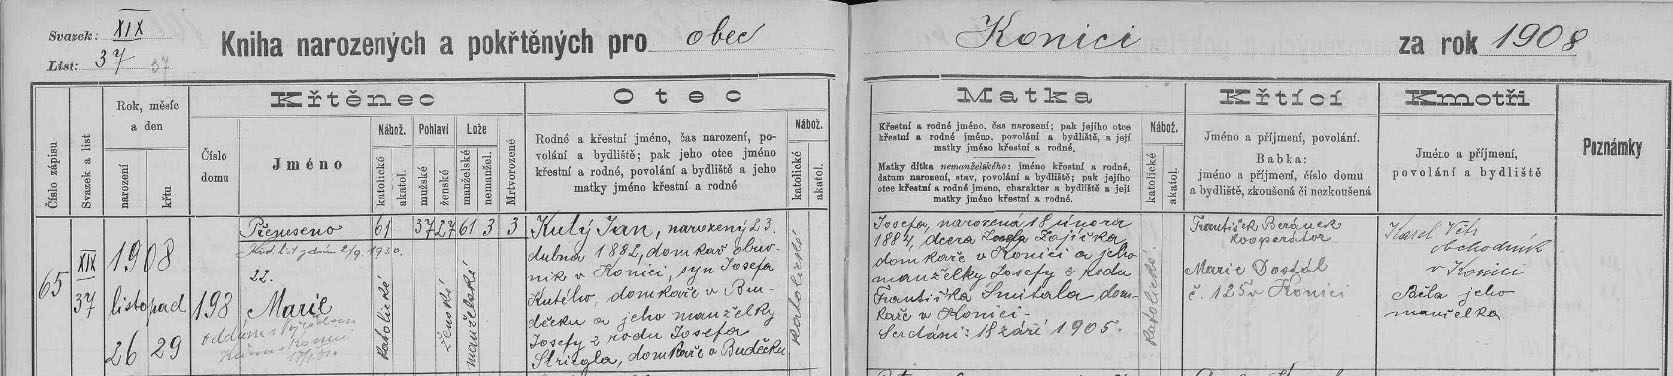 Svazek: XIX
List: 37 37
Kniha narozených a pokřtěných pro obec
Konici za rok 1908
Číslo zápisu
Svazek a list
Rok, měsíc
a den
narození
křtu
Křtěnec
Číslo
domu
Jméno
Nábož.
katolické
akatol.
Pohlaví
mužské
ženské
Lože
manželské
nemanžel.
Mrtvorozené
Otec
Rodné a křestní jméno, čas narození, po-
volání a bydliště; pak jeho otce jméno
křestní a rodné, povolání a bydliště a jeho
matky jméno křestní a rodné
Nábož.
katolické
akatol.
Matka
Křestní a rodné jméno, čas narození; pak jejího otce
křestní a rodné jméno, povolání a bydliště, a její
matky jméno křestní a rodné.
Matky dítka nemanželského: jméno křestní a rodné,
datum narození, stav, povolání a bydliště; pak jejího
otce křestní a rodné jmeno, charakter a bydliště a její
matky jméno křestní a rodné.
Nábož.
katolické
akatol.
Křtící
Jméno a příjmení, povolání.
Babka:
jméno a příjmení, číslo domu
a bydliště, zkoušená či nezkoušená
Kmotři
Jméno a příjmení,
povolání a bydliště
Poznámky
65
XIX
37
1908
listopad
26 29
198
Přeneseno 61 37 27 61 3 3
Křt. list vydán 2/9. 1930.
22.
Marie
katolické
ženské
manželské
Kutý Jan, narozený 23.
dubna 1882, domkař obuv-
ník v Konici, syn Josefa
Kutého, domkaře v Bu-
děčku a jeho manželky
Josefy z rodu Josefa
domkaře v Buděčku
katolické
Josefa, narozená 18 února
1884, dcera Josefa Zajíčka
domkaře v Konici a jeho
manželky Josefy z rodu
Františka Snítala dom-
kaře v Konici-
Sezdáni: 18 září 1905.
katolické
František Beránek
kooperator
Marie Dostál
č. 125 v Konici
Karel Vítr
obchodník
v Konici
Běla jeho
manželka